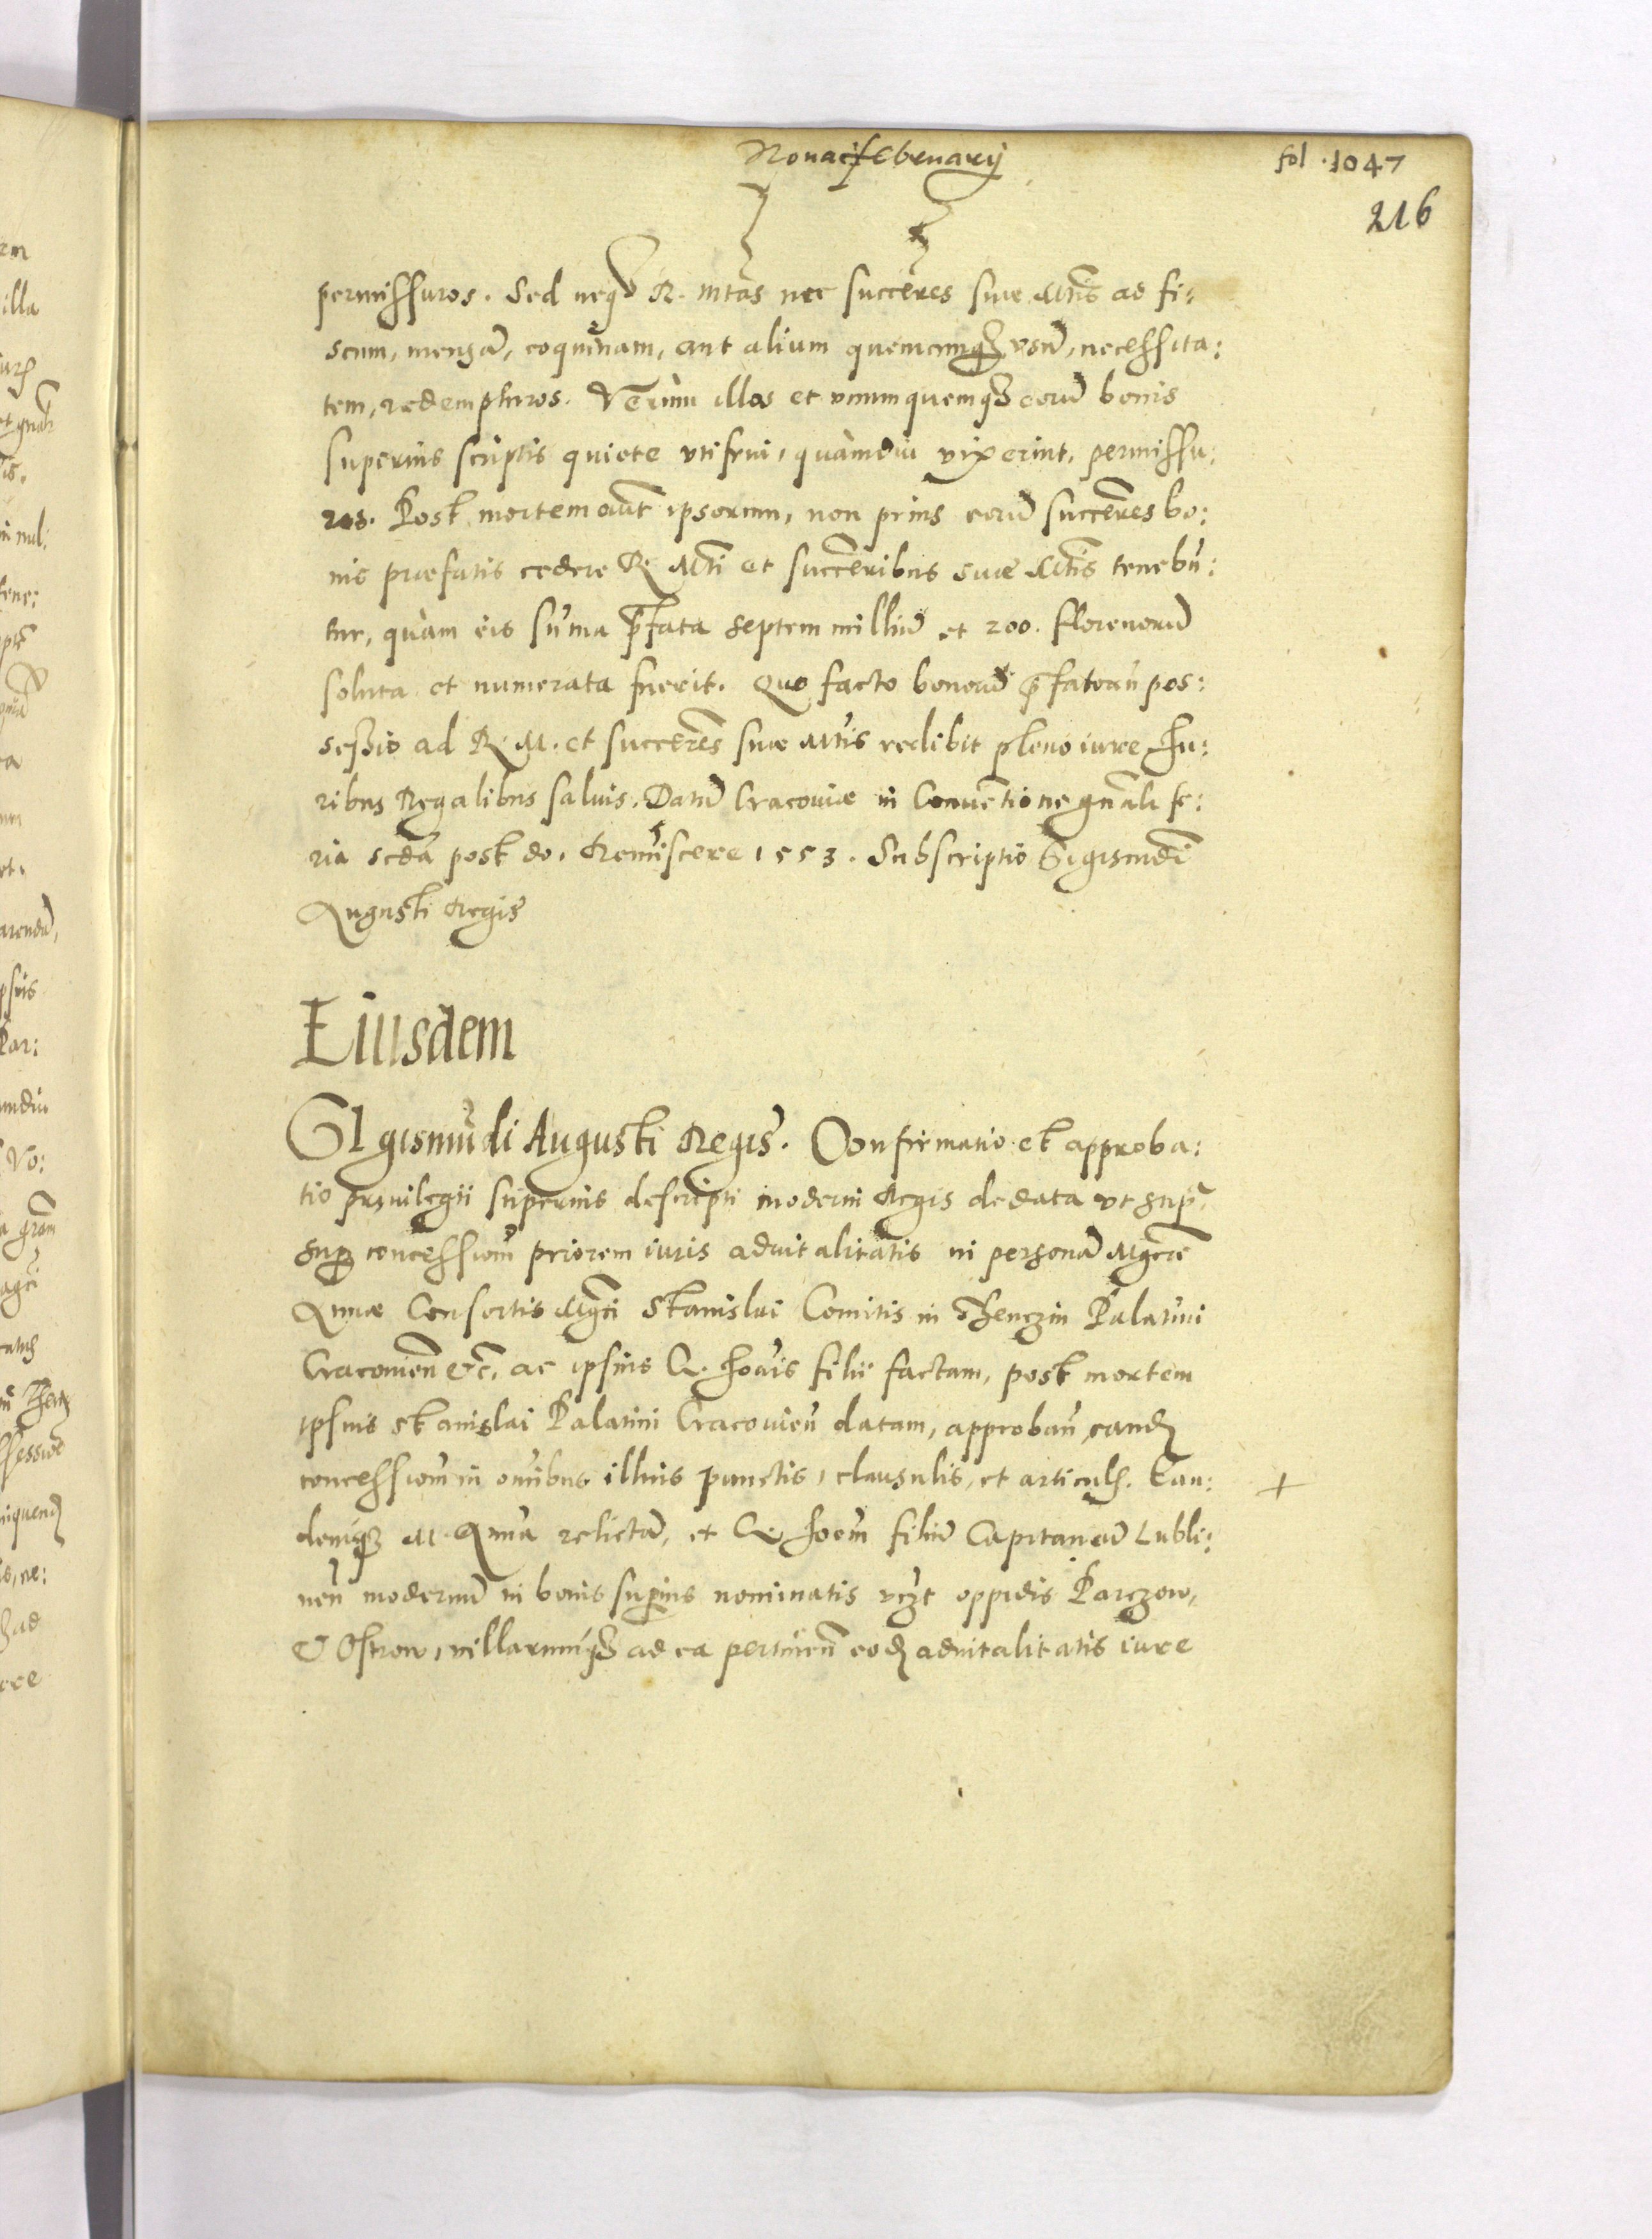 Nonae februarij
fol. 1047
216
permissuros. Sed neq₃ R. Mtas nec succeres suae Mtis ad fi:
scum, mensā, coquinam, aut alium quemcunq₃ vsū, necessita:
tem, redempturos. Verum illos et vnumquemq₃ eorū bonis
superius scriptis quiete vtifrui, quamdiu vixerint, permissu:
ros. Post mortem aūt ipsorum, non prius eorū succēres bo:
nis praefatis cedere R. Mti et succēribus suae Mtis tenebū:
tur, quam eis sūma p̄fata septem milliū et 200. florenorū
soluta et numerata fuerit. Quo facto bonorū p̄fatorū pos:
sessio ad R. M. et succeres suae Mtis redibit pleno iure Iu:
ribus Regalibus saluis. Datū Cracouiae in Conuentione gnāli fe:
ria scdā post do. Reminiscere 1553. Subscriptio Sigismūdi
Augusti Regis
Eiusdem
SIgismūdi Augusti Regis. Confirmatio et approba:
tio priuilegii superius descripti moderni Regis de data vt supr̄
sup concessionē priorem iuris aduitalitatis in personā Mgcae
Annae Consortis Mgci Stanislai Comitis in Thenczin Palatini
Cracouien̄ etc̄. ac ipsius G. Iohānis filii factam, post mortem
ipsius Stanislai Palatini Cracouien̄ datam, approban̄ eand
concessionē in omībus illius punctis, clausulis, et articulis. Ean: +
demq₃ M. Annā relictā, et G. Ioēm filiū Capitaneū Lubli:
nen̄ modernū in bonis supius nominatis vcz̄t oppidis Parczow,
& Ostrow, villarumq₃ ad ea pertinen̄ eod aduitalitatis iure